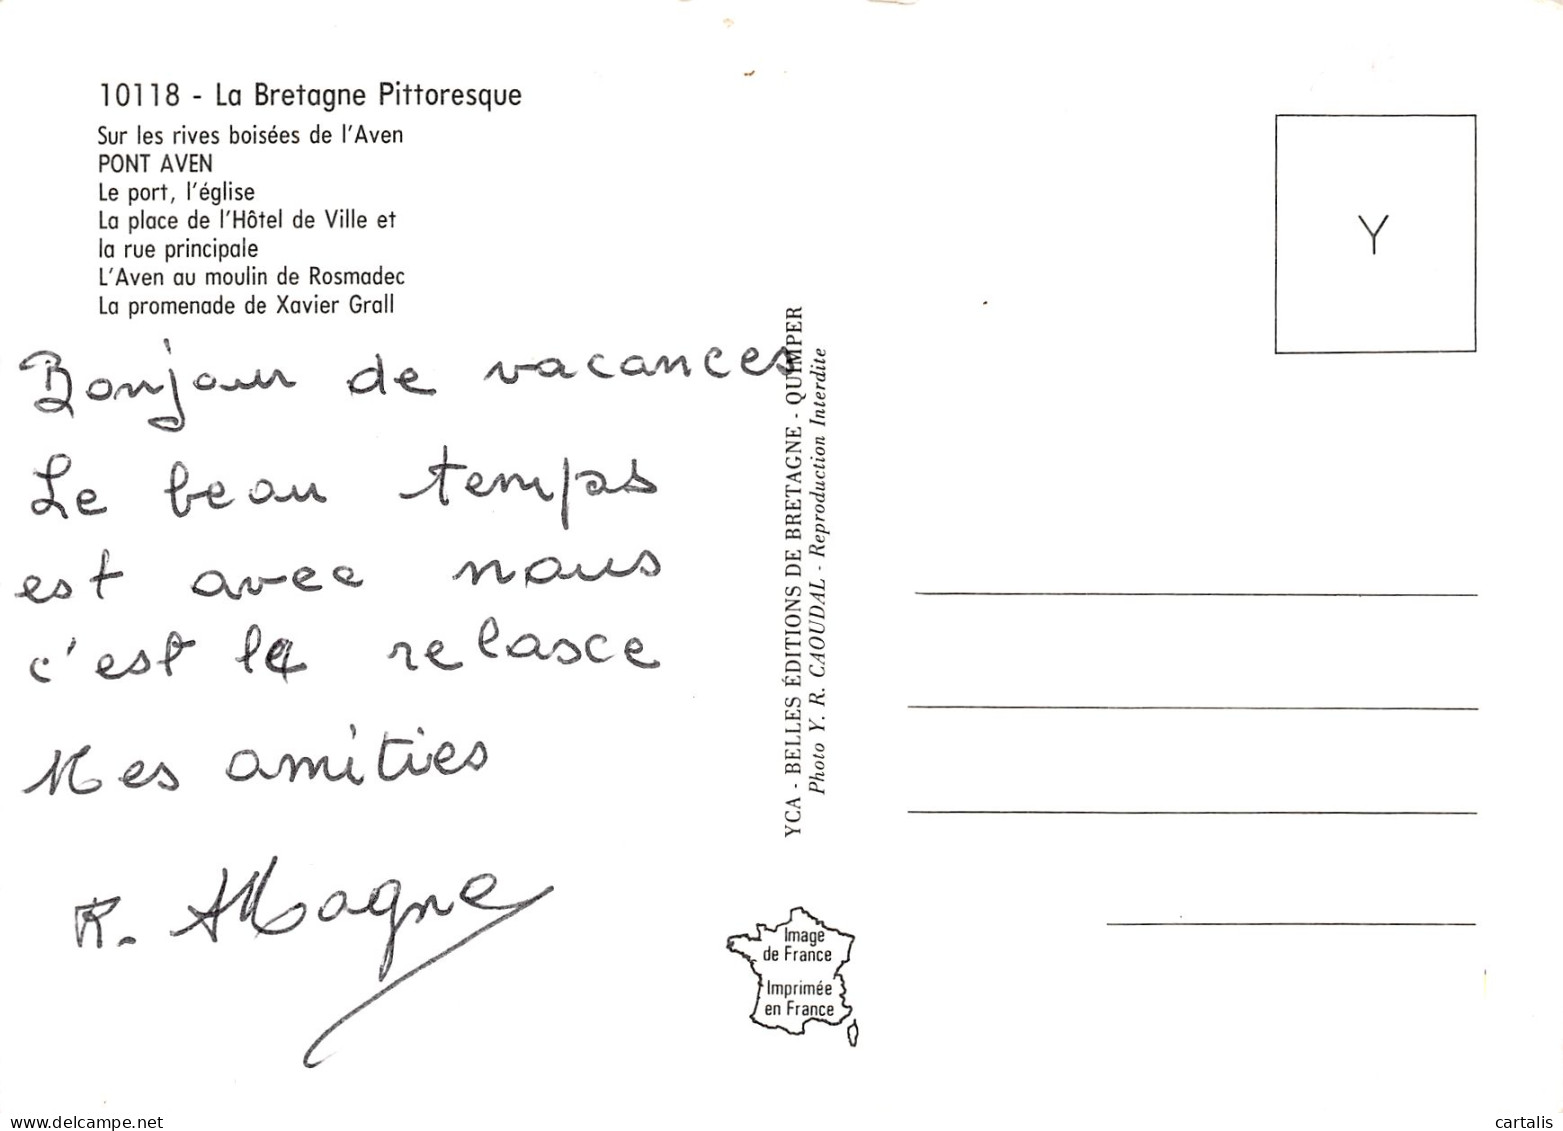 10118 - La Bretagne Pittoresque
Sur les rives boisées de l'Aven
PONT AVEN
Le port, l'église
La place de l'Hôtel de Ville et
la rue principale
L'Aven au moulin de Rosmadec
La promenade de Xavier Grall
Bonjour de vacances
Le beau temps
est avec nous
c'est la relasce
Mes amitiés
R. Magne
YCA - BELLES ÉDITIONS DE BRETAGNE - QUIMPER
Photo Y. R. CAOUDAL - Reproduction Interdite
Y
Image
de France
Imprimée
en France
delcampe.net
cartalis